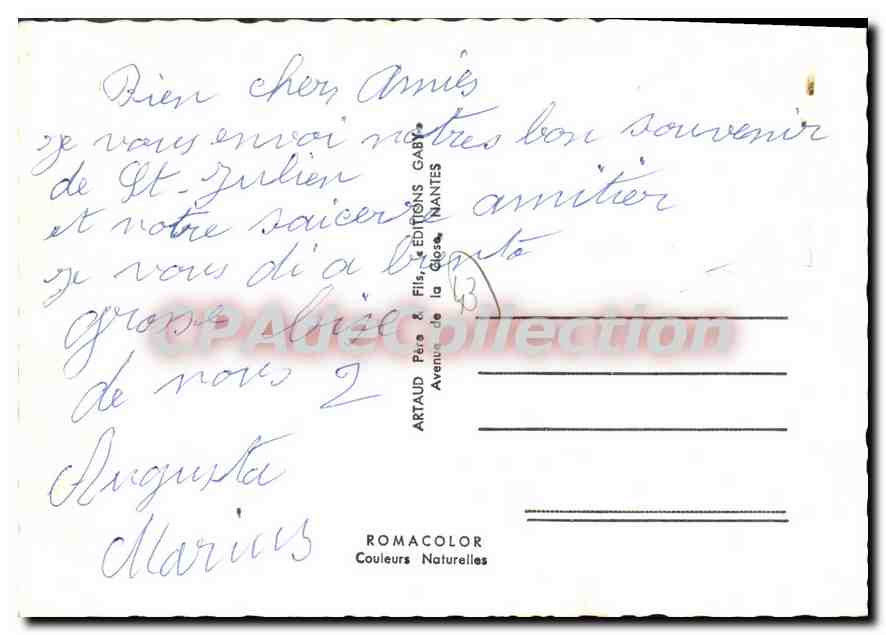 Bien cher Amies
je vous envoi notres bon souvenir
de St-Julien
et notre saicerre amitier
je vous di a biento
grosse bise
de nous 2
Augusta
Marius
ARTAUD Père & Fils, «EDITIONS GABY»
Avenue de la Close, NANTES
43
CPAdeCollection
ROMACOLOR
Couleurs Naturelles